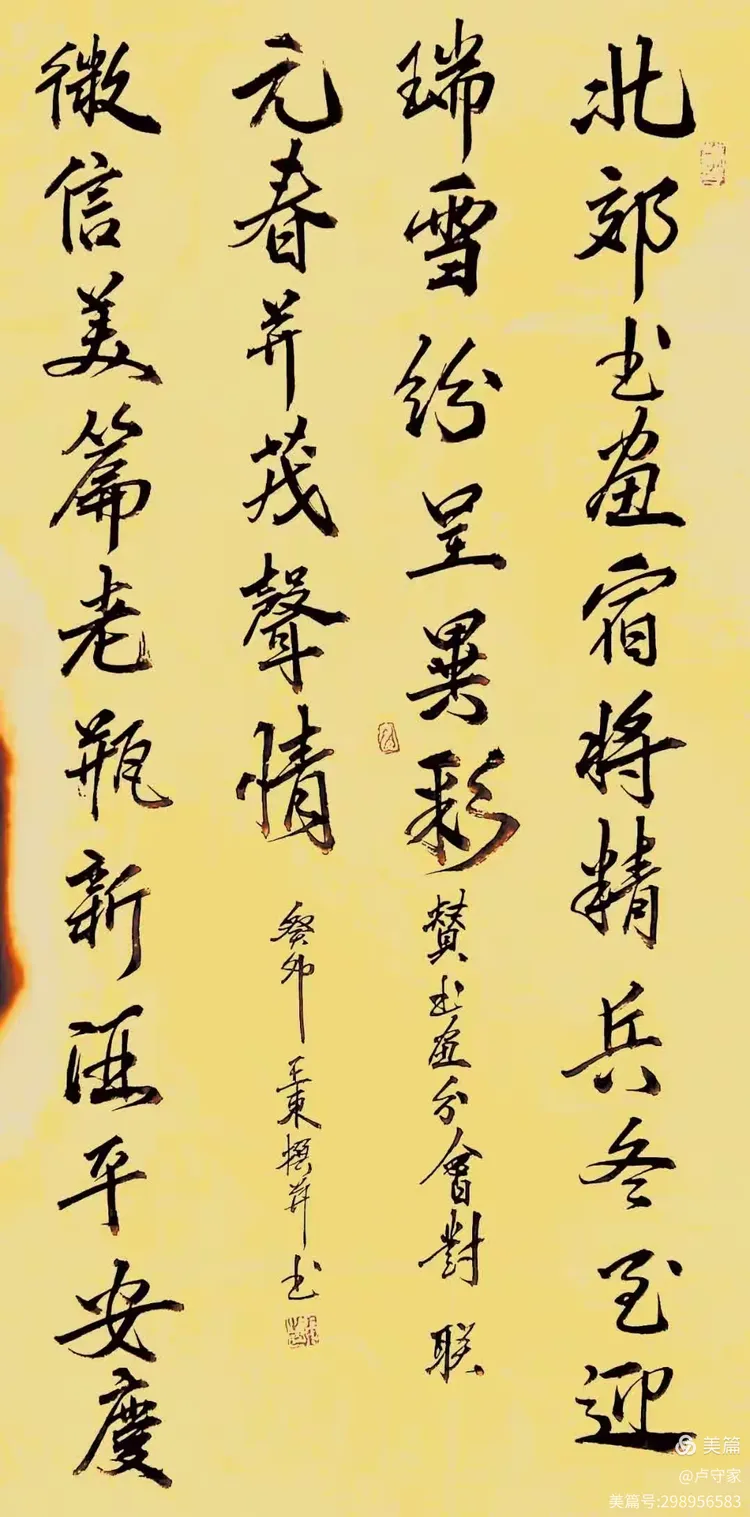 北郊书畫宿将精兵冬至迎
瑞雪纷呈異彩
賛书畫分會對联
微信美篇老瓶新酒平安慶
元春并茂聲情
癸卯王東撰并书
美篇
@卢守家
美篇号:298956583